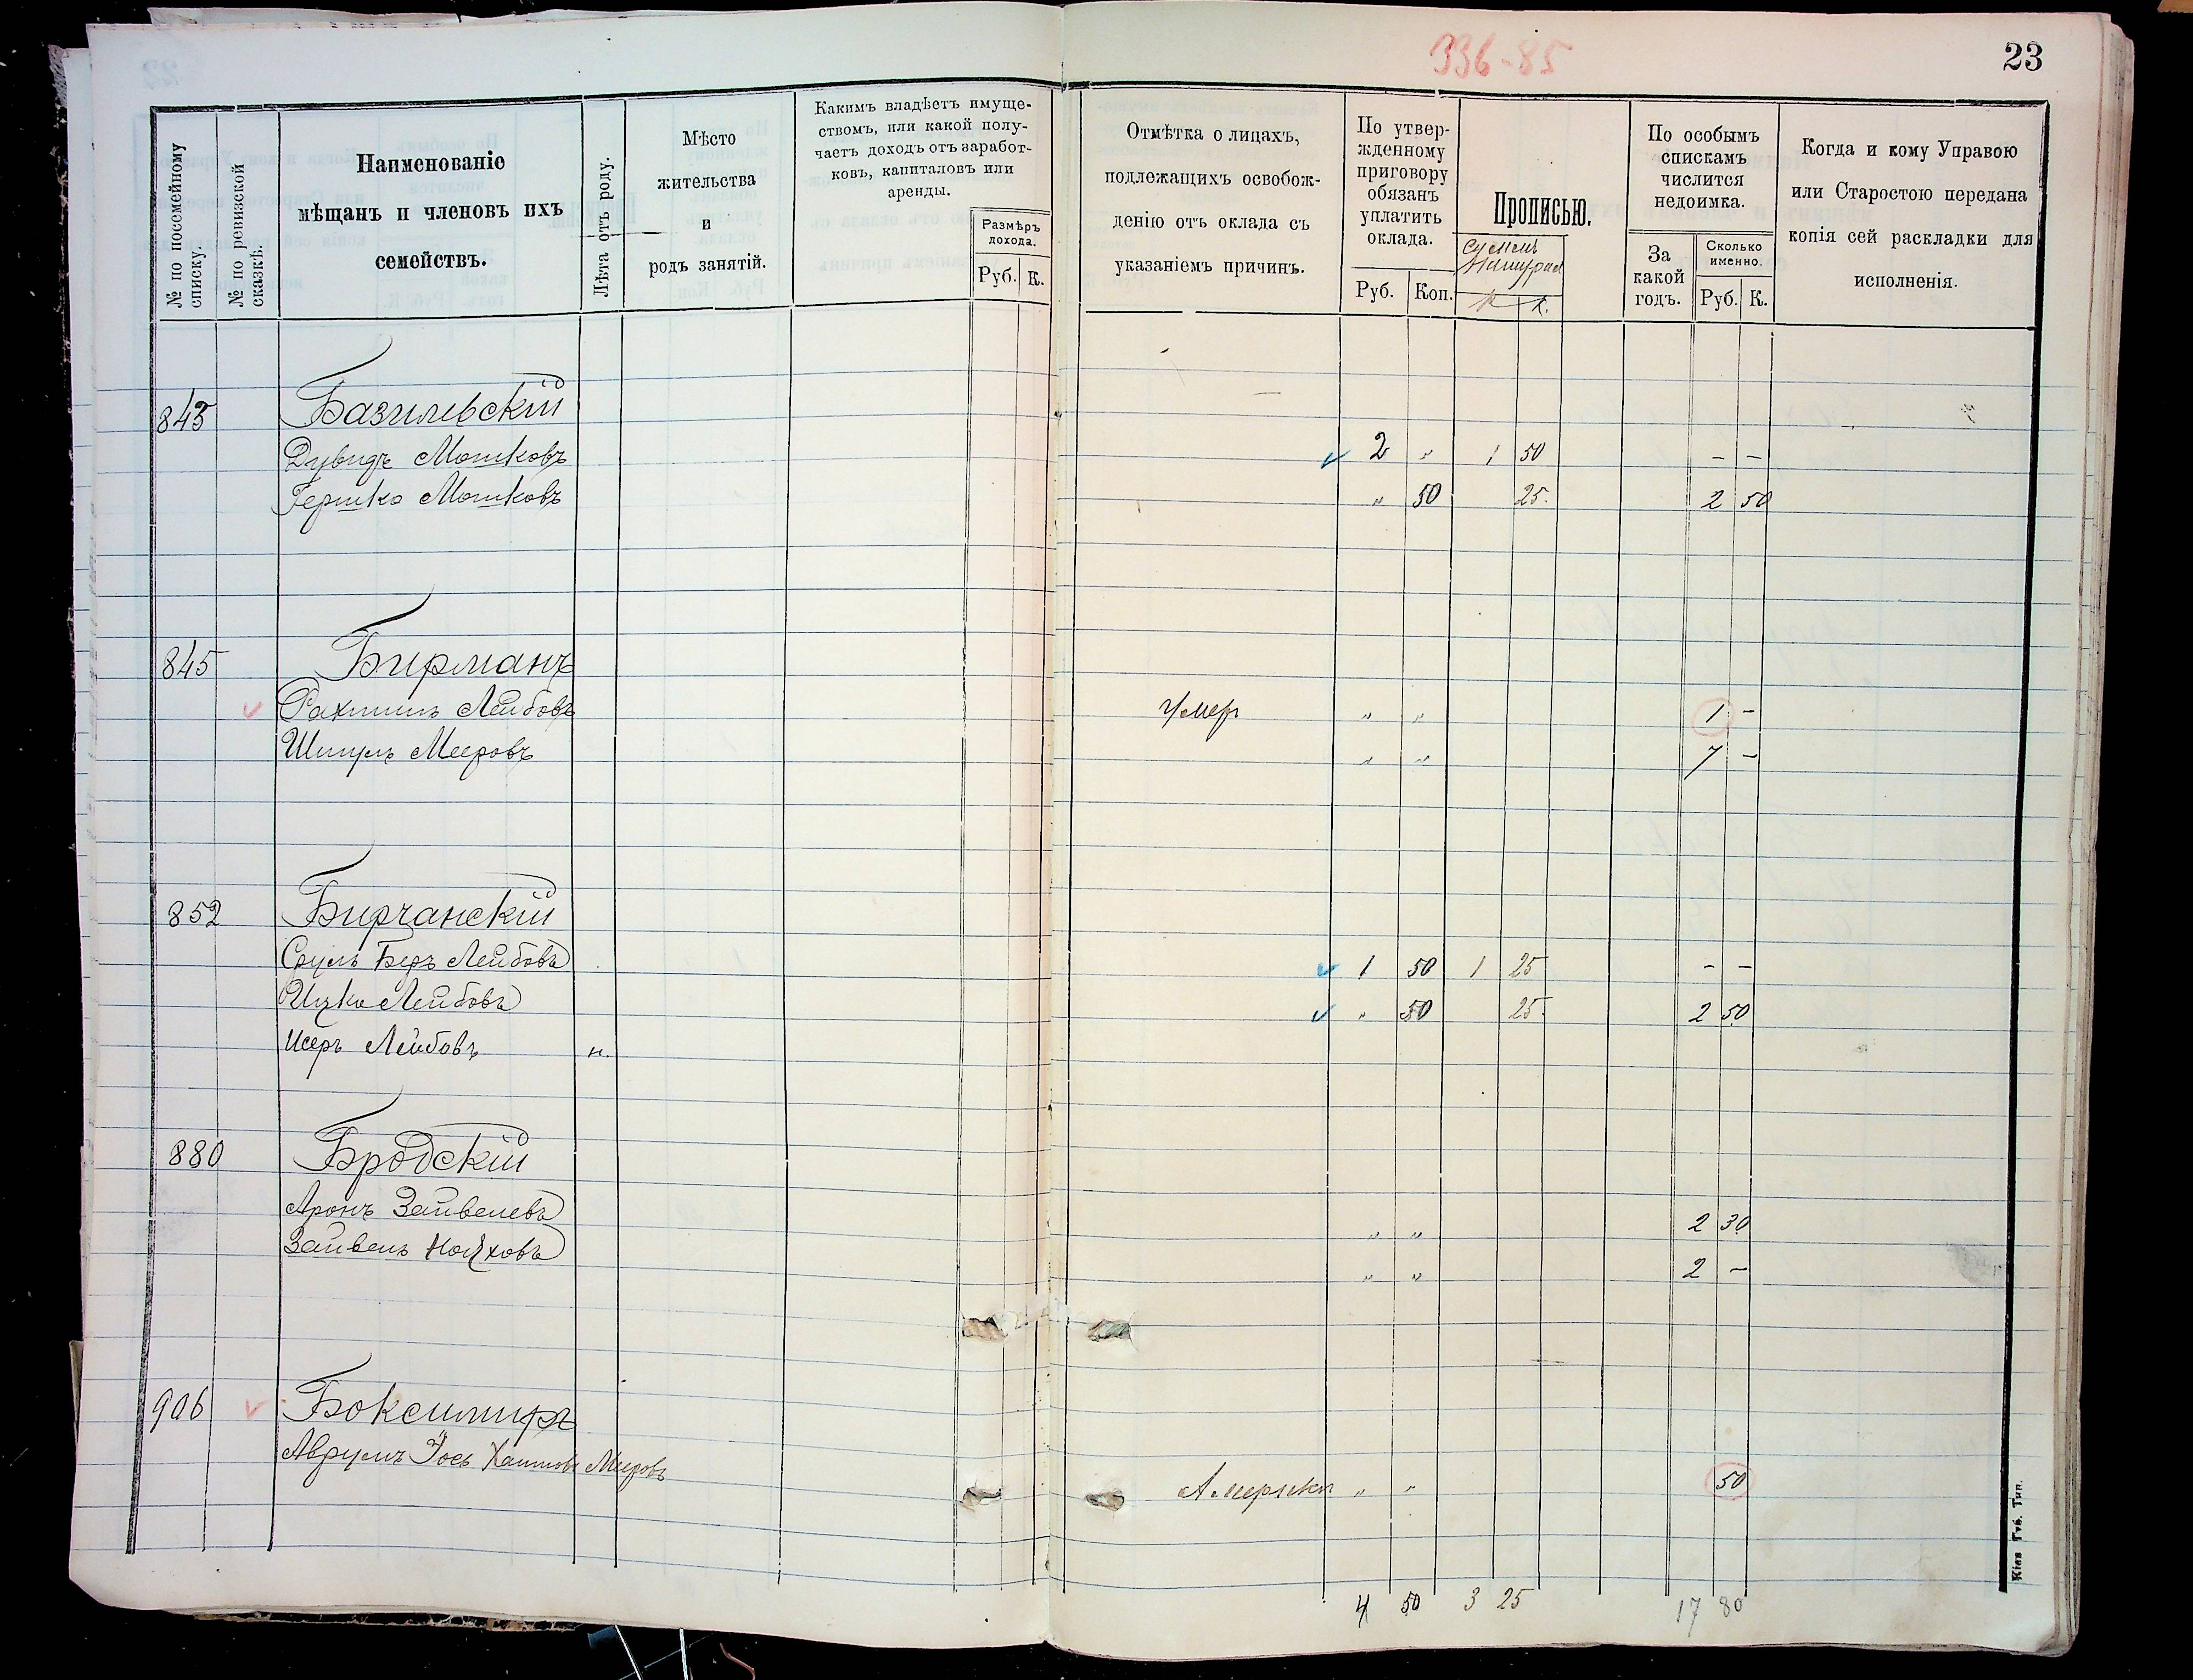 336-85
23
№ по посемейному списку.
№ по ревизской сказкѣ.
Наименованіе
мѣщанъ и членовъ ихъ
семействъ.
Лѣта отъ роду.
Мѣсто
жительства
и
родъ занятій.
Какимъ владѣетъ имуще-
ствомъ, или какой полу-
чаетъ доходъ отъ заработ-
ковъ, капиталовъ или
аренды.
Размѣръ
дохода.
Руб. К.
Отмѣтка о лицахъ,
подлежащихъ освобож-
денію отъ оклада съ
указаніемъ причинъ.
По утвер-
жденному
приговору
обязанъ
уплатить
оклада.
Руб. Коп.
Прописью.
К.
По особымъ
спискамъ
числится
недоимка.
За
какой
годъ.
Сколько
именно.
Руб. К.
Когда и кому Управою
или Старостою передана
копія сей раскладки для
исполненія.
843 Базилевскій
Дувидъ Мошковъ 2 „ 1 50 – –
Гершко Мошковъ „ 50 25. 2 50
845 Бирманъ
Рахмиль Лейбовъ Умеръ „ „ 1 –
Шмуль Мееровъ „ „ 7 –
852 Бирчанскій
Сруль Беръ Лейбовъ 1 50 1 25 – –
Ицко Лейбовъ „ 50 25. 2 50
Исеръ Лейбовъ н.
880 Бродскій
Аронъ Зейвелевъ „ „ 2 30
Зейвель „ „ 2 –
906
Аврумъ Іось Хаимовъ Мееровъ Америка „ „ 50
4 50 3 25 17 80
Кіев Губ. Тип.